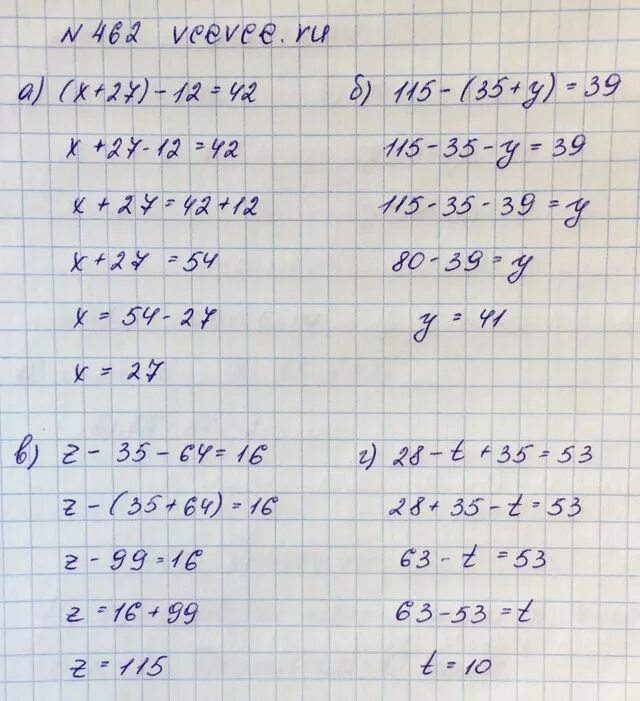 № 462 vcevce.ru
а) (x+27)-12=42
x+27-12=42
x+27=42+12
x+27=54
x=54-27
x=27
б) 115-(35+y)=39
115-35-y=39
115-35-39=y
80-39=y
y=41
в) z-35-64=16
z-(35+64)=16
z-99=16
z=16+99
z=115
г) 28-t+35=53
28+35-t=53
63-t=53
63-53=t
t=10